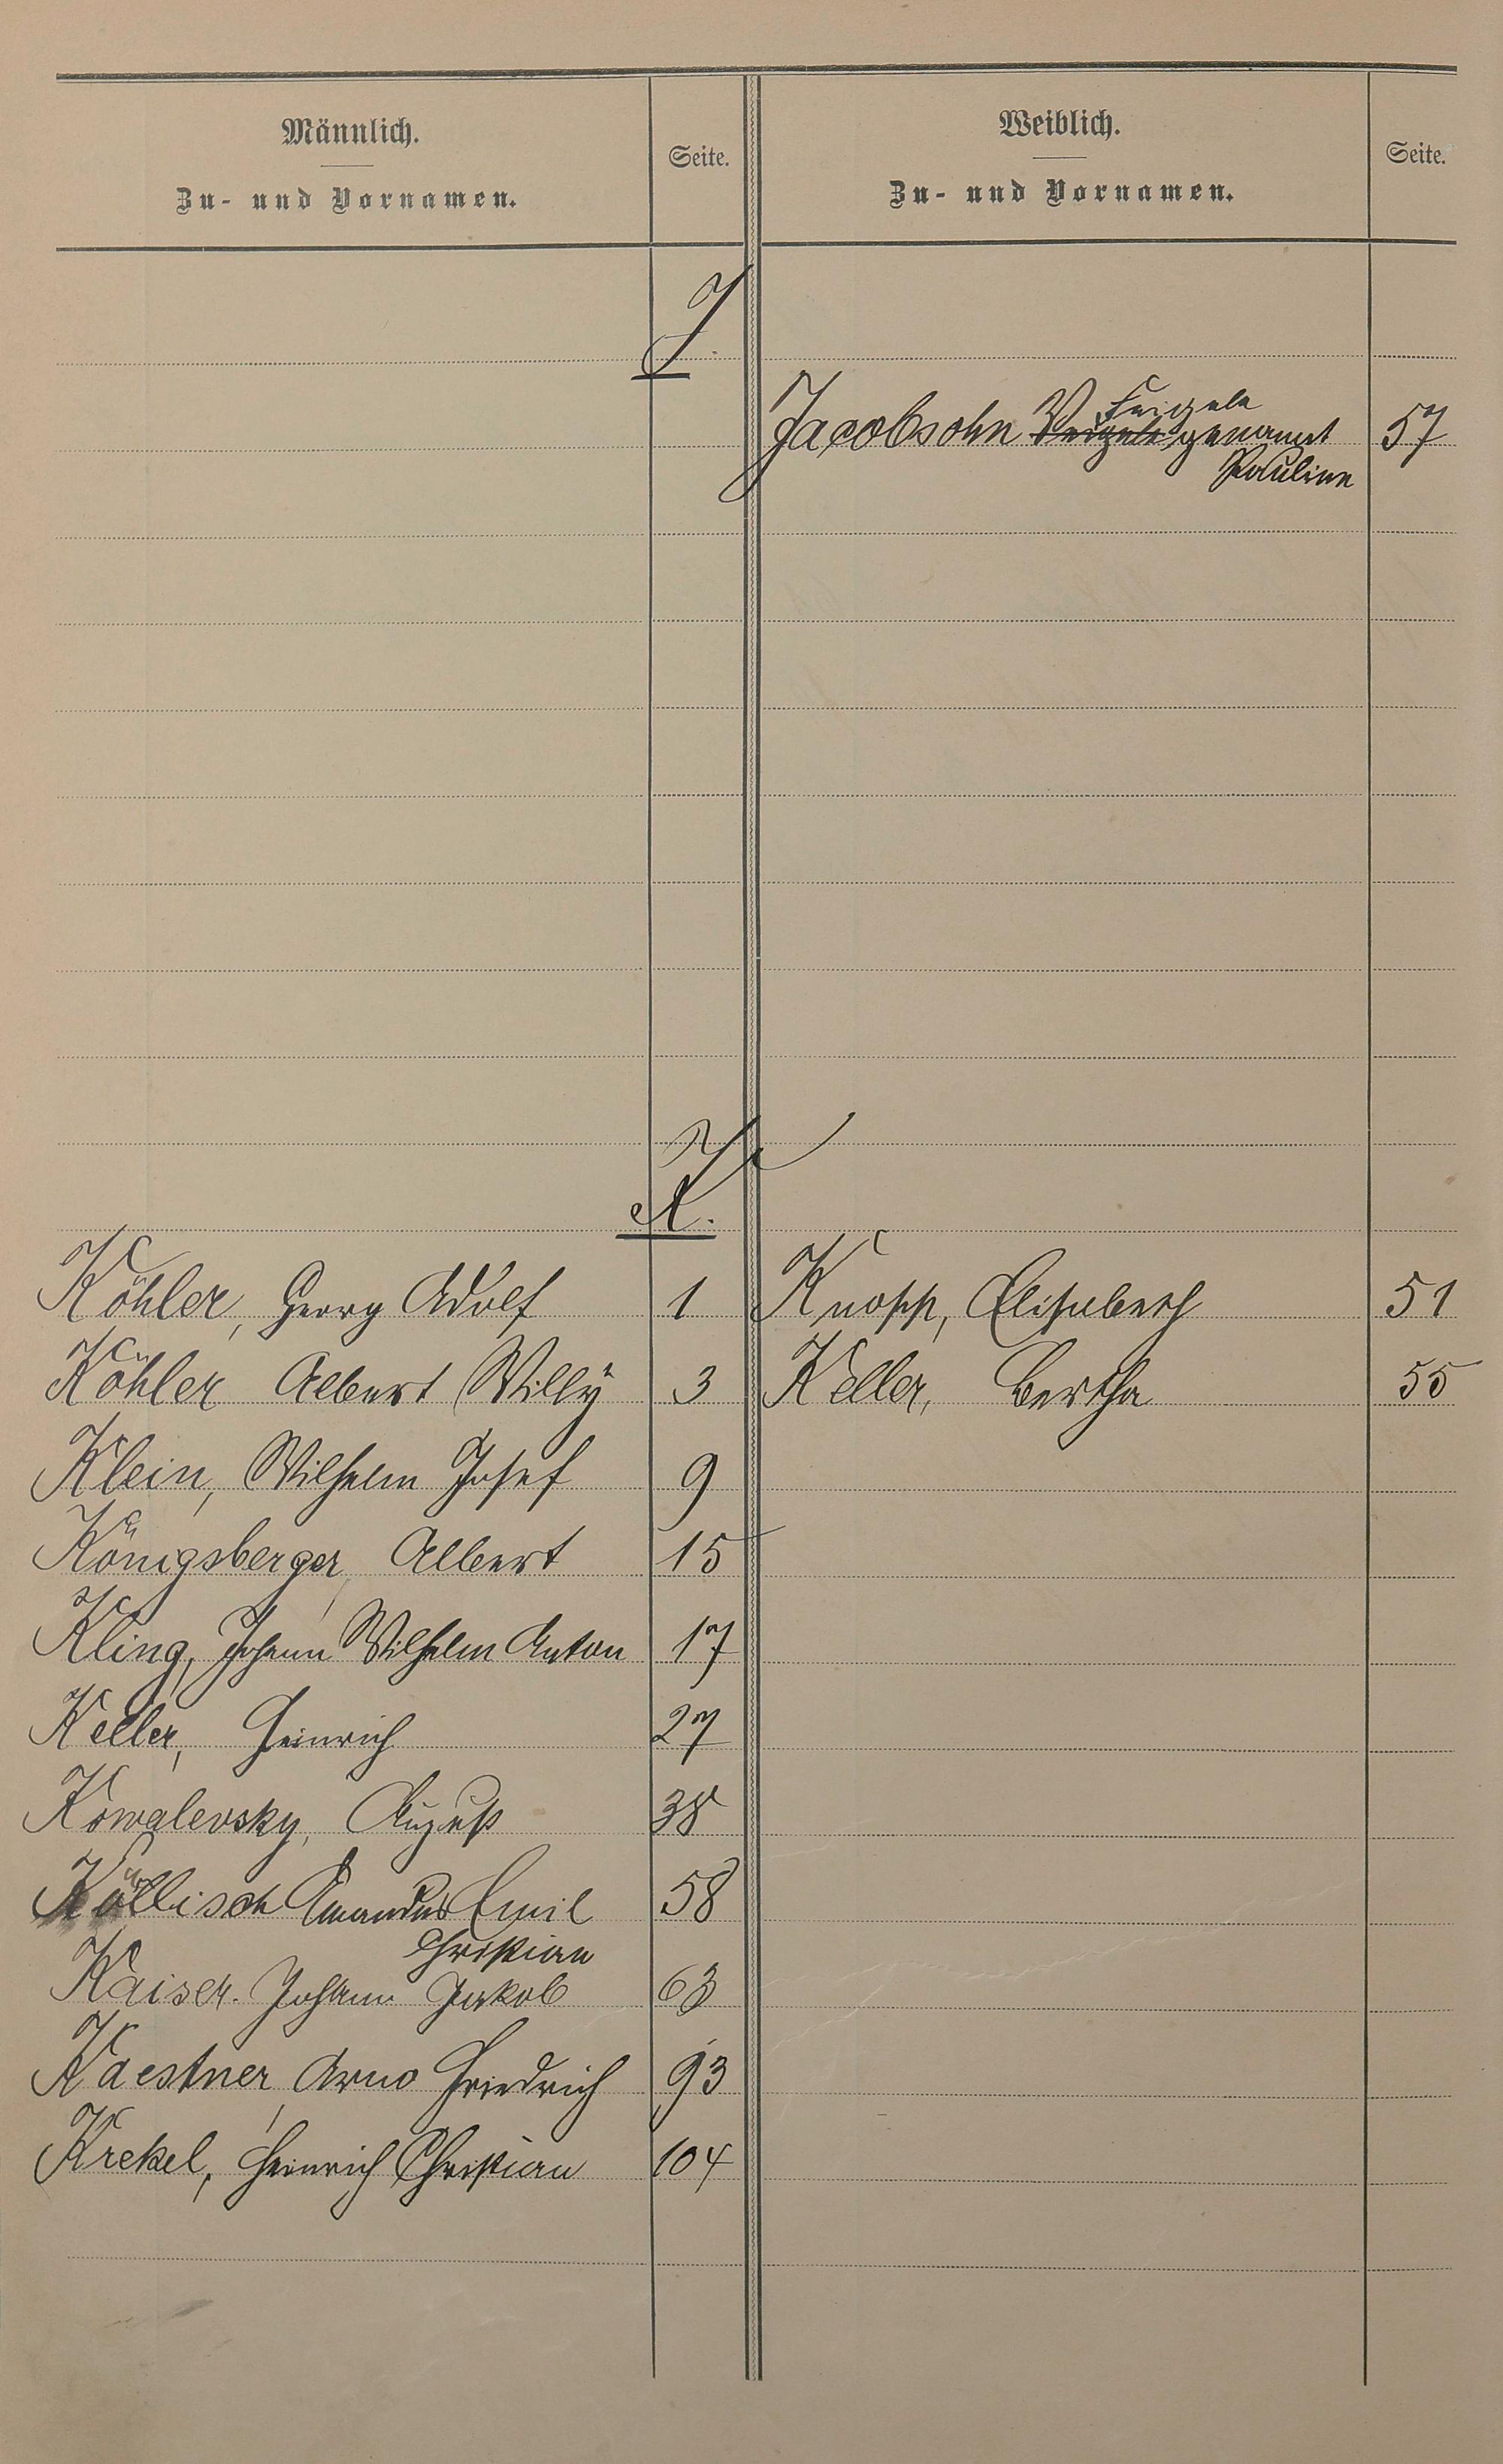 Männlich.
Zu- und Vornamen.
Seite.
Weiblich.
Zu- und Vornamen.
Seite.
J.
Feigele
Jacobsohn Veigele genannt 57
Pauline
K.
Köhler, Georg Adolf 1 Knopp, Elisabeth 51
Köhler Albert Willy 3 Keller, Bertha 55
Klein, Wilhelm Josef 9
Königsberger, Albert 15
Kling, Johann Wilhelm Anton 17
Keller, Heinrich 27
Kowalevsky, August 38
Köllisch Amandus Emil 58
Christian
Kaiser. Johann Jakob 63
Kaestner, Arno Friedrich 93
Krekel, Heinrich Christian 104